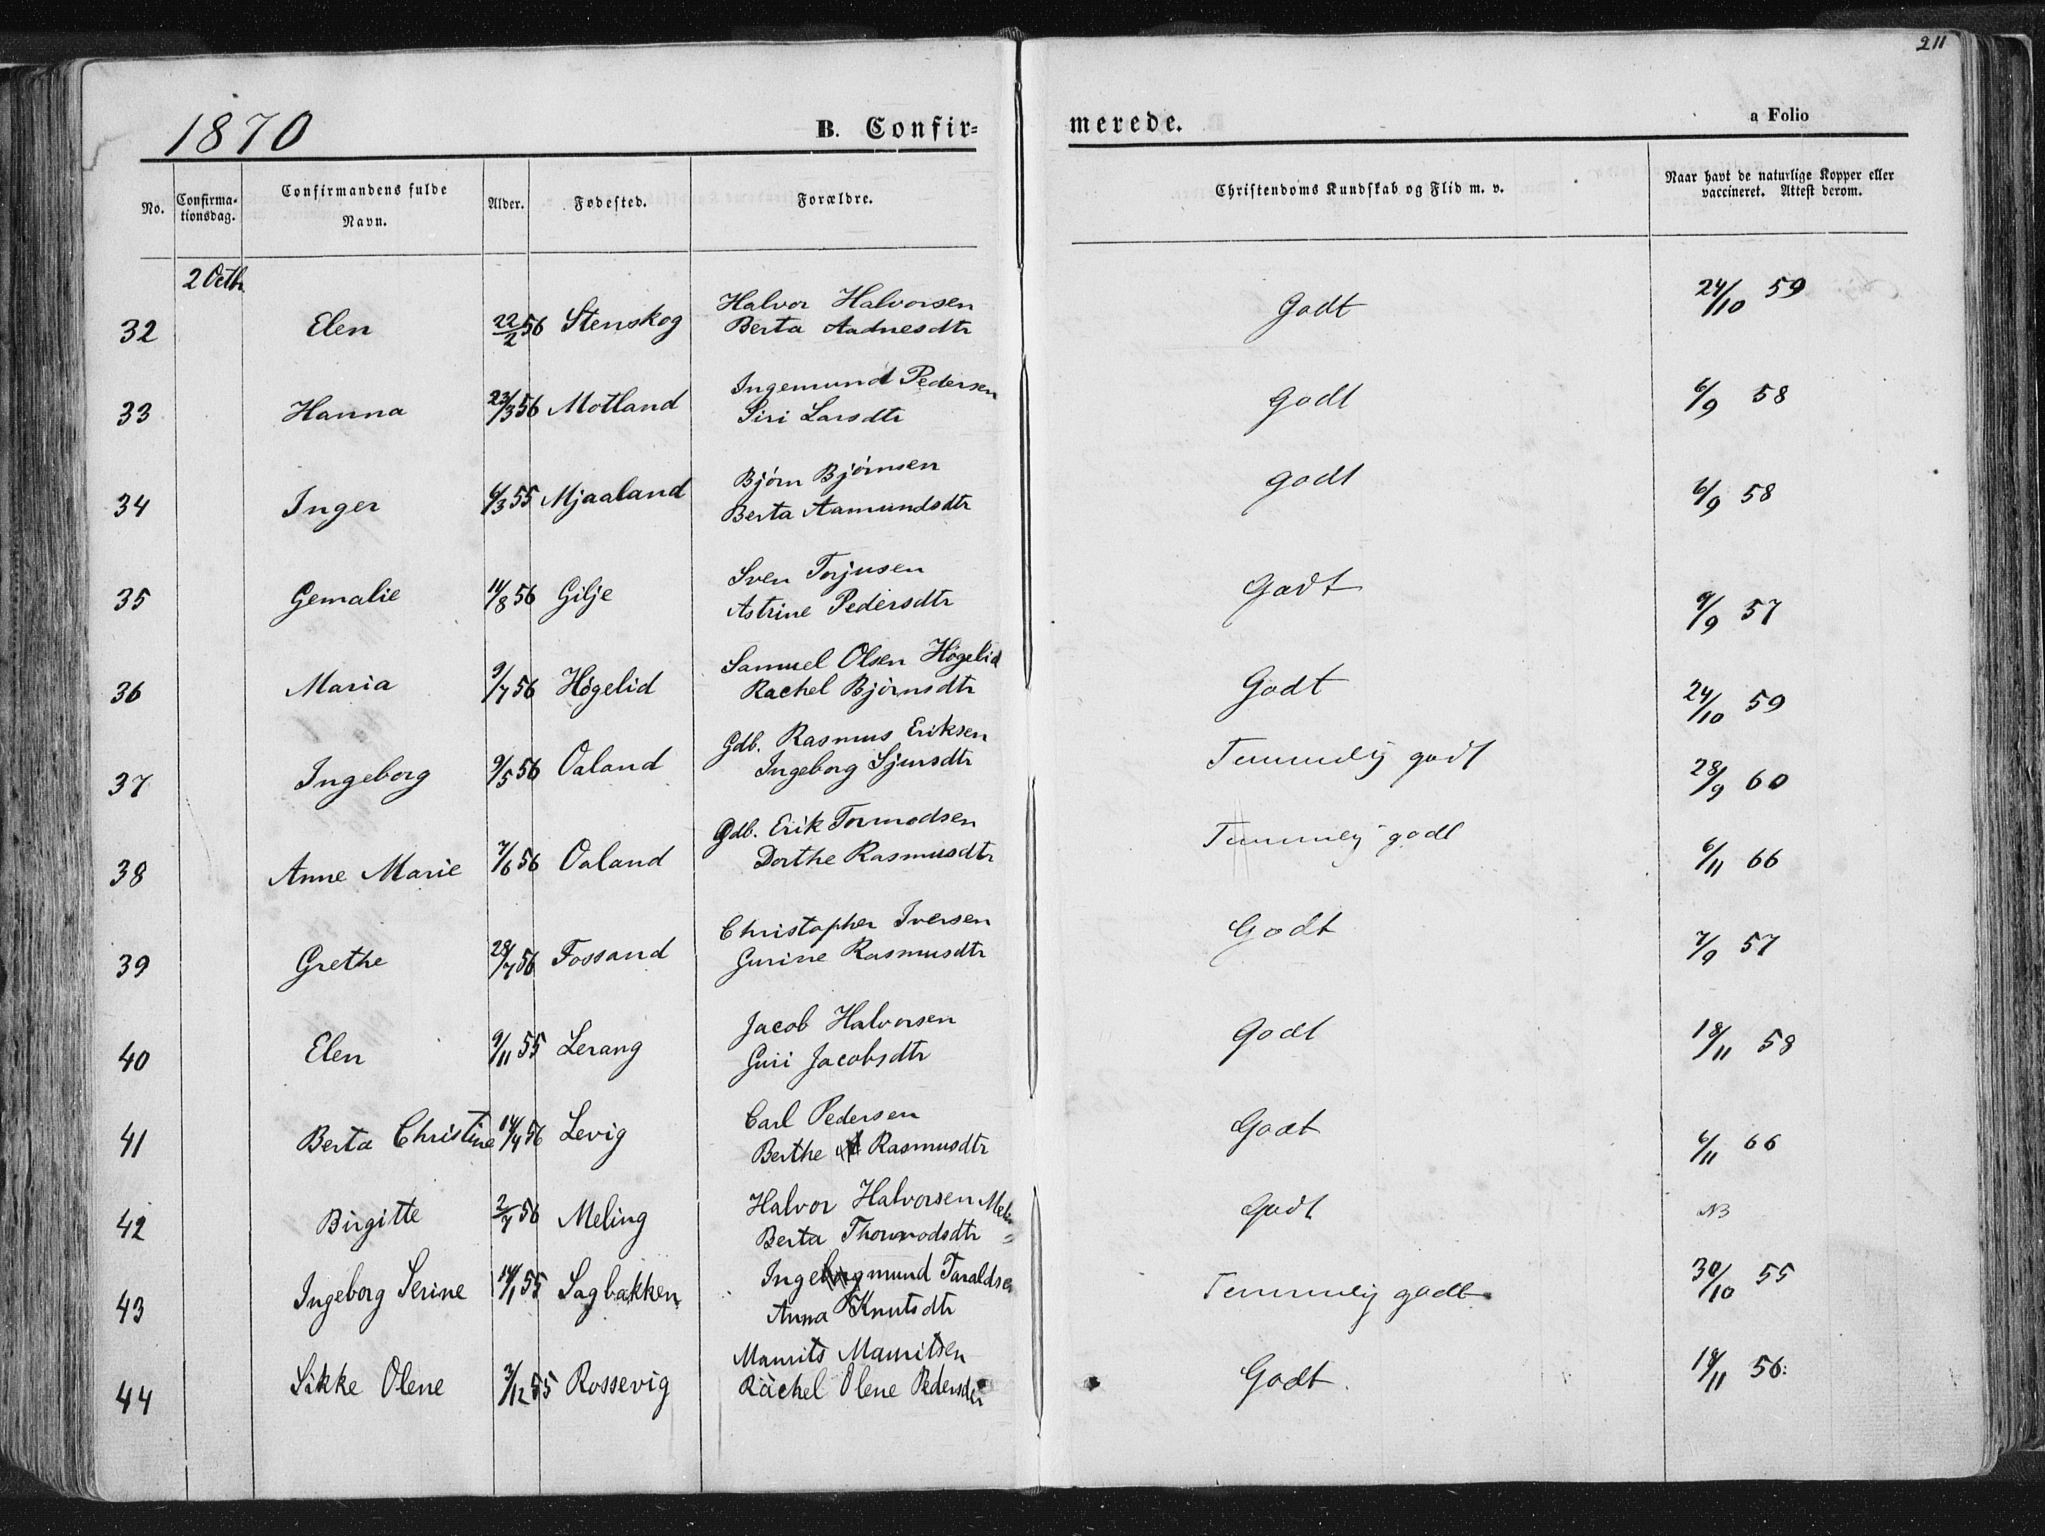 211
1870
B. Confir=
merede.
a Folio
No.
Confirma-
tionsdag.
Confirmandens fulde
Navn.
Alder.
Fødested.
Forældre.
Christendoms Kundskab og Flid m. v.
Naar havt de naturlige Kopper eller
vaccineret. Attest derom.
2 Octbr.
32 Elen 22/2 56 Stenskog Halvor Halvorsen Godt 24/10 59
Berta Aadnesdtr
33 Hanna 23/3 56 Motland Ingemund Pedersen Godt 6/9 58
Siri Larsdtr
34 Inger 6/3 55 Mjaaland Bjørn Bjørnsen godt 6/9 58
Berta Aamundsdtr
35 Gemalie 11/8 56 Gilje Sven Torjusen Godt 9/9 57
Astrine Pedersdtr
36 Maria 9/7 56 Høgelid Samuel Olsen Høgelid Godt 24/10 59
Rachel Bjørnsdtr
37 Ingeborg 9/5 56 Oaland Gdb. Rasmus Eriksen Temmelig godt 28/9 60
Ingeborg Sjursdtr
38 Anne Marie 7/6 56 Oaland Gdb. Erik Tormodsen Temmelig godt 6/11 66
Dorthe Rasmusdtr
39 Grethe 28/7 56 Fossand Christopher Iversen Godt 7/9 57
Gurine Rasmusdtr
40 Elen 9/11 55 Lerang Jacob Halvorsen Godt 18/11 58
Guri Jacobsdtr
41 Berta Christine 14/4 56 Levig Carl Pedersen Godt 6/11 66
Berthe Rasmusdtr
42 Birgitte 2/7 56 Meling Halvor Halvorsen Godt NB
Berta Thormodsdtr
43 Ingeborg Serine 14/1 55 Sagbakken Ingemund Taraldsen Temmelig godt 30/10 55
Anna Knutsdtr
44 Sikke Olene 3/12 55 Rossevig Maurits Mauritsen Godt. 18/11 56:
Rachel Olene Pedersdtr